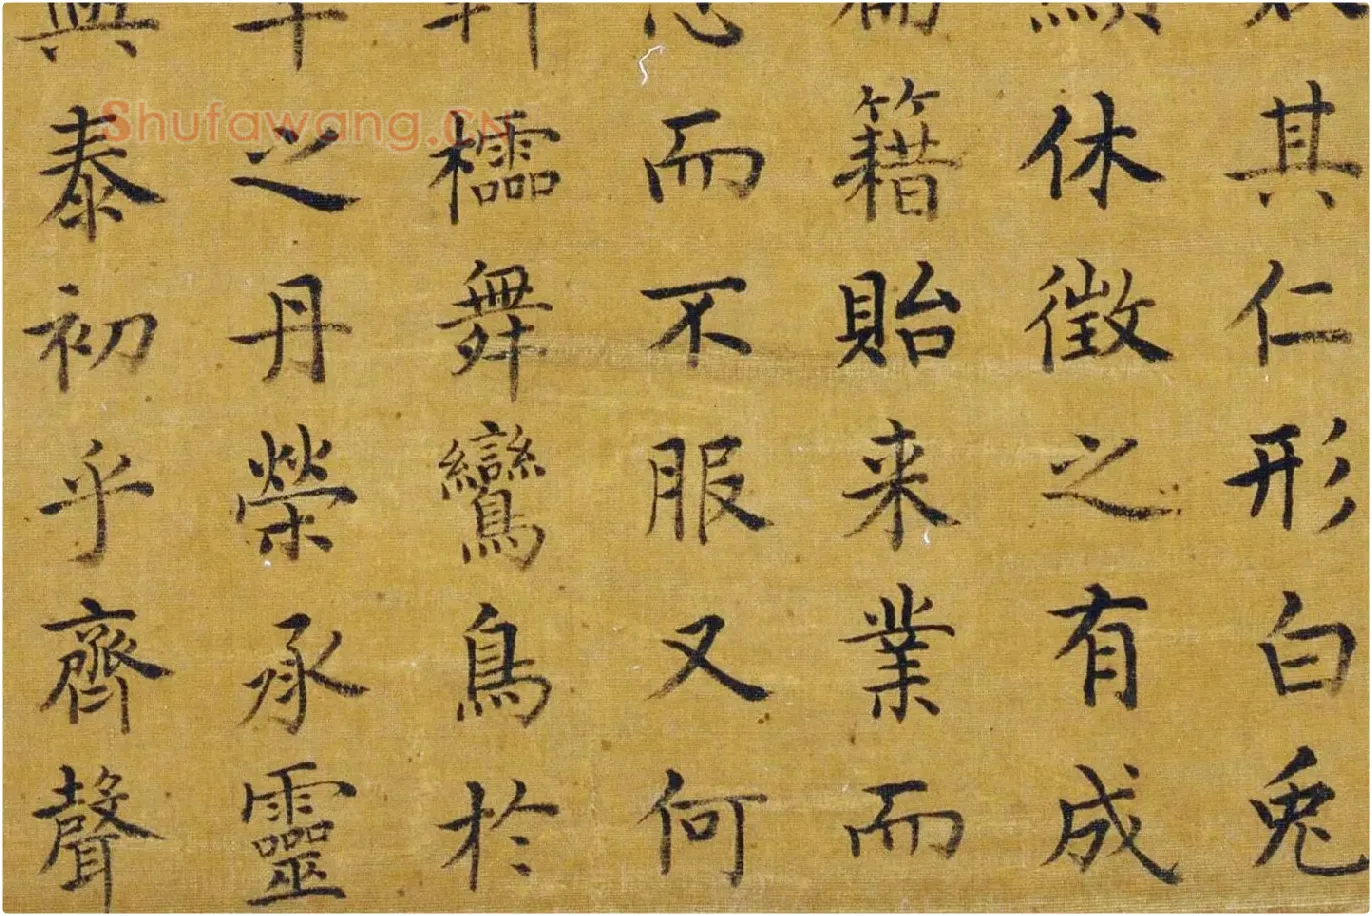 其仁形白兔
休徵之有成
籍貽来業而
而不服又何
櫺舞鸞鳥於
之丹榮承靈
泰初乎齊聲
Shufawang.CN